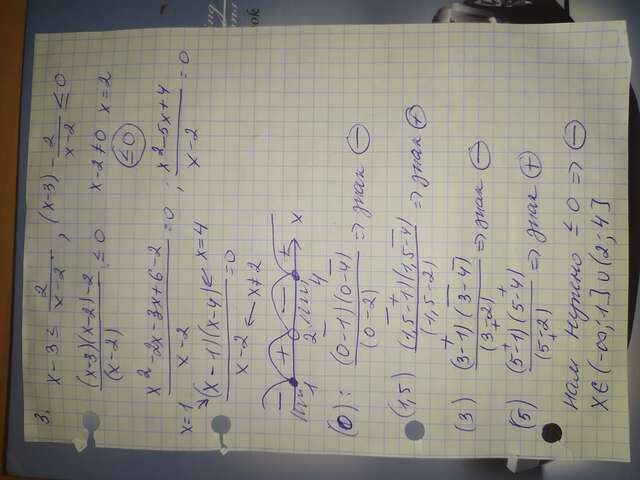 3. x-3 ≤ 2/(x-2), (x-3) - 2/(x-2) ≤ 0
((x-3)(x-2)-2)/(x-2) ≤ 0 x-2≠0 x=2
≤0
(x²-2x-3x+6-2)/(x-2) = 0; (x²-5x+4)/(x-2) = 0
x=1
((x-1)(x-4))/(x-2) = 0 x=4
x≠2
- + - +
1 2 4 x
(0): ((0-1)(0-4))/(0-2) => знак -
(1,5) ((1,5-1)(1,5-4))/(1,5-2) => знак +
(3) ((3-1)(3-4))/(3-2) => знак -
(5) ((5-1)(5-4))/(5-2) => знак +
нам нужно ≤ 0 => -
x∈(-∞;1]∪(2;4]